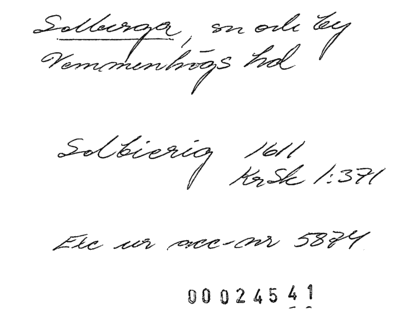 Solberga, sn och by
Vemmenhögs hd
Solbierig 1611
KrSk 1:371
Exc ur acc-nr 5874
00024541